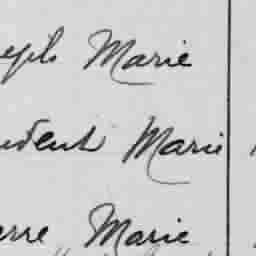 eph Marie
udent Marie
erre Marie